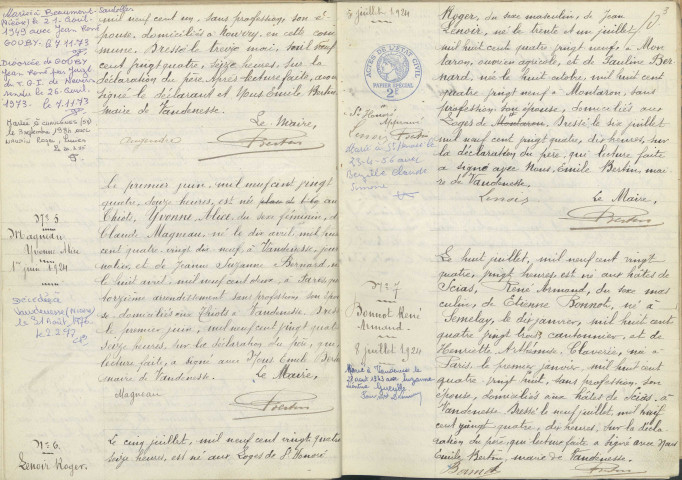 Mariée à Beaumont-Sardolles
(Nièvre) le 21 Avril
1949 avec Jean René
GOUBY. le 7.11.73
Divorcée de GOUBY
Jean René par Jugt
du T.G.I. de Nevers
en date du 26 Avril
1973. le 7.11.73
mil neuf cent un, sans profession, son é-
pouse, domiciliés à Nourry en cette com
mune. Dressé le trente mai, mil neuf
cent vingt quatre, seize heures, sur la
déclaration du père. Après lecture faite, avons
signé le déclarant et Nous Emile Bertin
maire de Vandenesse.
Le Maire,
Bertin
N° 5
Magneau
Yvonne Alice
1er juin 1924
Décédée à
Vandenesse (Nièvre)
le 21 Août 1976
Le premier juin, mil neuf cent vingt
quatre, seize heures, est née
Chiot, Yvonne Alice, du sexe féminin, de
Claude Magneau, né le dix avril mil huit
cent quatre vingt dix neuf à Vandenesse, jour
nalier, et de Jeanne Suzanne Bernard, née
le huit avril, mil neuf cent deux, à Paris qua
torzième arrondissement sans profession son épou
se, domiciliés aux Chiots à Vandenesse. Dressé
le premier juin, mil neuf cent vingt quatre
seize heures, sur la déclaration du père, qui,
lecture faite, a signé avec Nous Emile Bertin
maire de Vandenesse.
Le Maire,
Magneau
Bertin
N° 6
Lenoir Roger.
Le cinq juillet, mil neuf cent vingt quatre
seize heures, est né aux Loges de St Honoré
5 juillet 1924
ACTES DE L'ÉTAT CIVIL
PAPIER SPÉCIAL
2F
Marié à St Honoré le
23-4-56 avec
Claude
Simone
Roger, du sexe masculin, de Jean
Lenoir, né le trente et un juillet
mil huit cent quatre vingt neuf à Mon
taron, ouvrier agricole, et de Pauline Ber
nard, née le huit octobre, mil huit cent
quatre vingt neuf à Montaron, sans
profession son épouse, domiciliés aux
Loges de Montaron. Dressé le six juillet
mil neuf cent vingt quatre, dix heures, sur
la déclaration du père, qui, lecture faite
a signé avec Nous, Emile Bertin, mai
re de Vandenesse.
Lenoir
Le Maire,
Bertin
N° 7
Bonnot René
Armand.
8 juillet 1924
Marié à Vandenesse le
Le huit juillet, mil neuf cent vingt
quatre, vingt heures est né aux hâtes de
Scias, René Armand, du sexe mas
culin, de Etienne Bonnot, né à
Semelay, le dix janvier, mil huit cent
quatre vingt trois, cantonnier, et de
Henriette Arthémise Claverie, née à
Paris, le premier janvier, mil huit cent
quatre vingt huit, sans profession, son
épouse, domiciliés aux hâtes de Scias à
Vandenesse. Dressé le neuf juillet, mil neuf
cent vingt quatre, dix heures, sur la décla
ration du père, qui, lecture faite a signé avec Nous
Emile Bertin, maire de Vandenesse.
Bonnot
Bertin